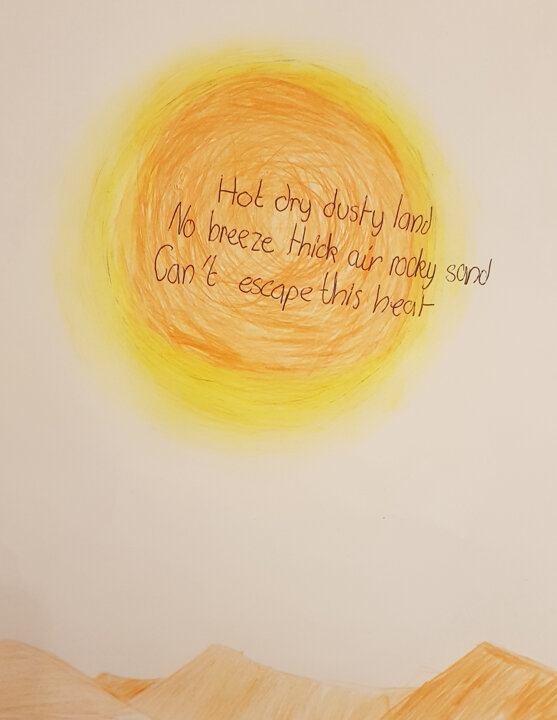 Hot dry dusty land
No breeze thick air rocky sand
Can't escape this heat